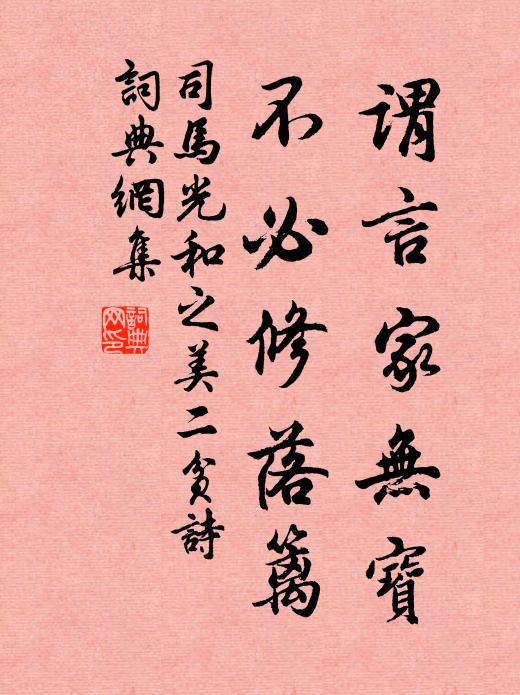 謂言家無寶
不必修落籬
司馬光和之美二貧詩
詞典網集
詞典網印